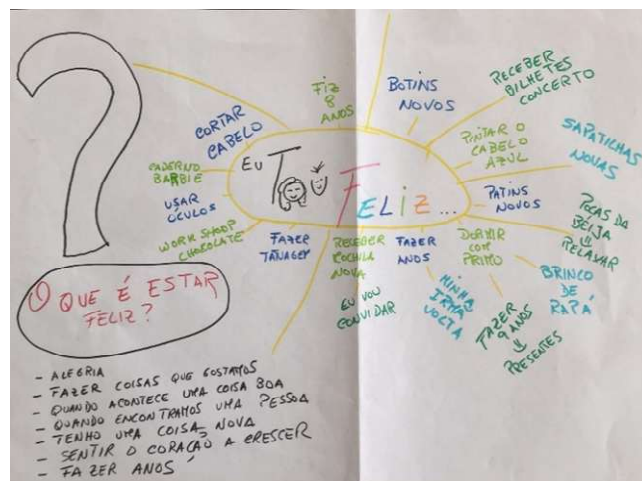 ?
EU TOU FELIZ...
CORTAR
CABELO
FIZ
8
ANOS
BOTINS
NOVOS
RECEBER
BILHETES
CONCERTO
PINTAR O
CABELO
AZUL
SAPATILHAS
NOVAS
PATINS
NOVOS
POÇAS DA
BEIJA
RELAXAR
BRINCO
DE
RAPÁ
DORMIR
COM
PRIMO
FAZER
9 ANOS
PRESENTES
FAZER
ANOS
MINHA
IRMÃ
VOLTA
RECEBER
MOCHILA
NOVA
EU VOU
CONVIDAR
FAZER
WORK SHOOP
CHOCOLATE
USAR
ÓCULOS
CADERNO
BARBIE
O QUE É ESTAR
FELIZ?
- ALEGRIA
- FAZER COISAS QUE GOSTAMOS
- QUANDO ACONTECE UMA COISA BOA
- QUANDO ENCONTRAMOS UMA PESSOA
- TENHO UMA COISA NOVA
- SENTIR O CORAÇÃO A CRESCER
- FAZER ANOS